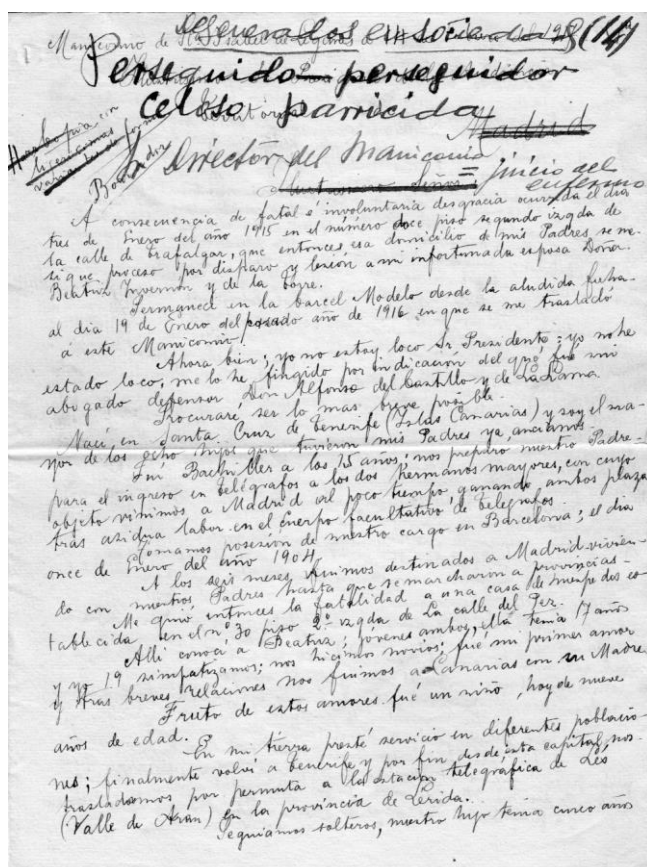 degenerados en sociedad 8 (14)
Manicomio de Sta Isabel de Leganés a
Perseguido - perseguidor
celoso parricida
Madrid
Director del Manicomio
= juicio del
enfermo
A consecuencia de fatal é involuntaria desgracia ocurrida el dia
tres de Enero del año 1915 en el número doce piso segundo izqda de
la calle de Trafalgar, que entonces era domicilio de mis Padres se me
sigue proceso por disparo y lesión a mi infortunada esposa Doña
Beatriz y de la Torre.
Permanecí en la Carcel Modelo desde la aludida fecha
al dia 19 de Enero del pasado año de 1916 en que se me trasladó
á este Manicomio.
Ahora bien; yo no estoy loco Sr Presidente; yo no he
estado loco, me lo he fingido por indicación del que fué mi
abogado defensor Don Alfonso del Castillo y de
Procuraré ser lo mas breve posible.
Nací en Santa Cruz de Tenerife (Islas Canarias) y soy el ma-
yor de los ocho hijos que tuvieron mis Padres ya ancianos.
Fuí Bachiller a los 15 años; nos preparó nuestro Padre
para el ingreso en Telégrafos a los dos hermanos mayores, con cuyo
objeto vinimos a Madrid al poco tiempo ganando ambos plaza
tras asidua labor en el Cuerpo facultativo de Telégrafos.
Tomamos posesión de nuestro cargo en Barcelona; el dia
once de Enero del año 1904.
A los seis meses fuimos destinados a Madrid vivien-
do con nuestros Padres hasta que se marcharon a provincias.
Me guió entonces la fatalidad a una casa de huespedes es-
tablecida en el nº 30 piso 2º izqda de La calle del Pez.
Allí conocí a Beatriz; jóvenes ambos, ella tenia 17 años
y yo 19 simpatizamos; nos hicimos novios; fué mi primer amor
y tras breves relaciones nos fuimos a Canarias con su Madre
Fruto de estos amores fué un niño, hoy de nueve
años de edad.
En mi tierra presté servicio en diferentes poblacio-
nes; finalmente volví a Tenerife y por fin desde esta capital, nos
trasladamos por permuta a la estación telegráfica de Lés
(Valle de Aran) en la provincia de Lerida.
Seguiamos solteros, nuestro hijo tenia cinco años